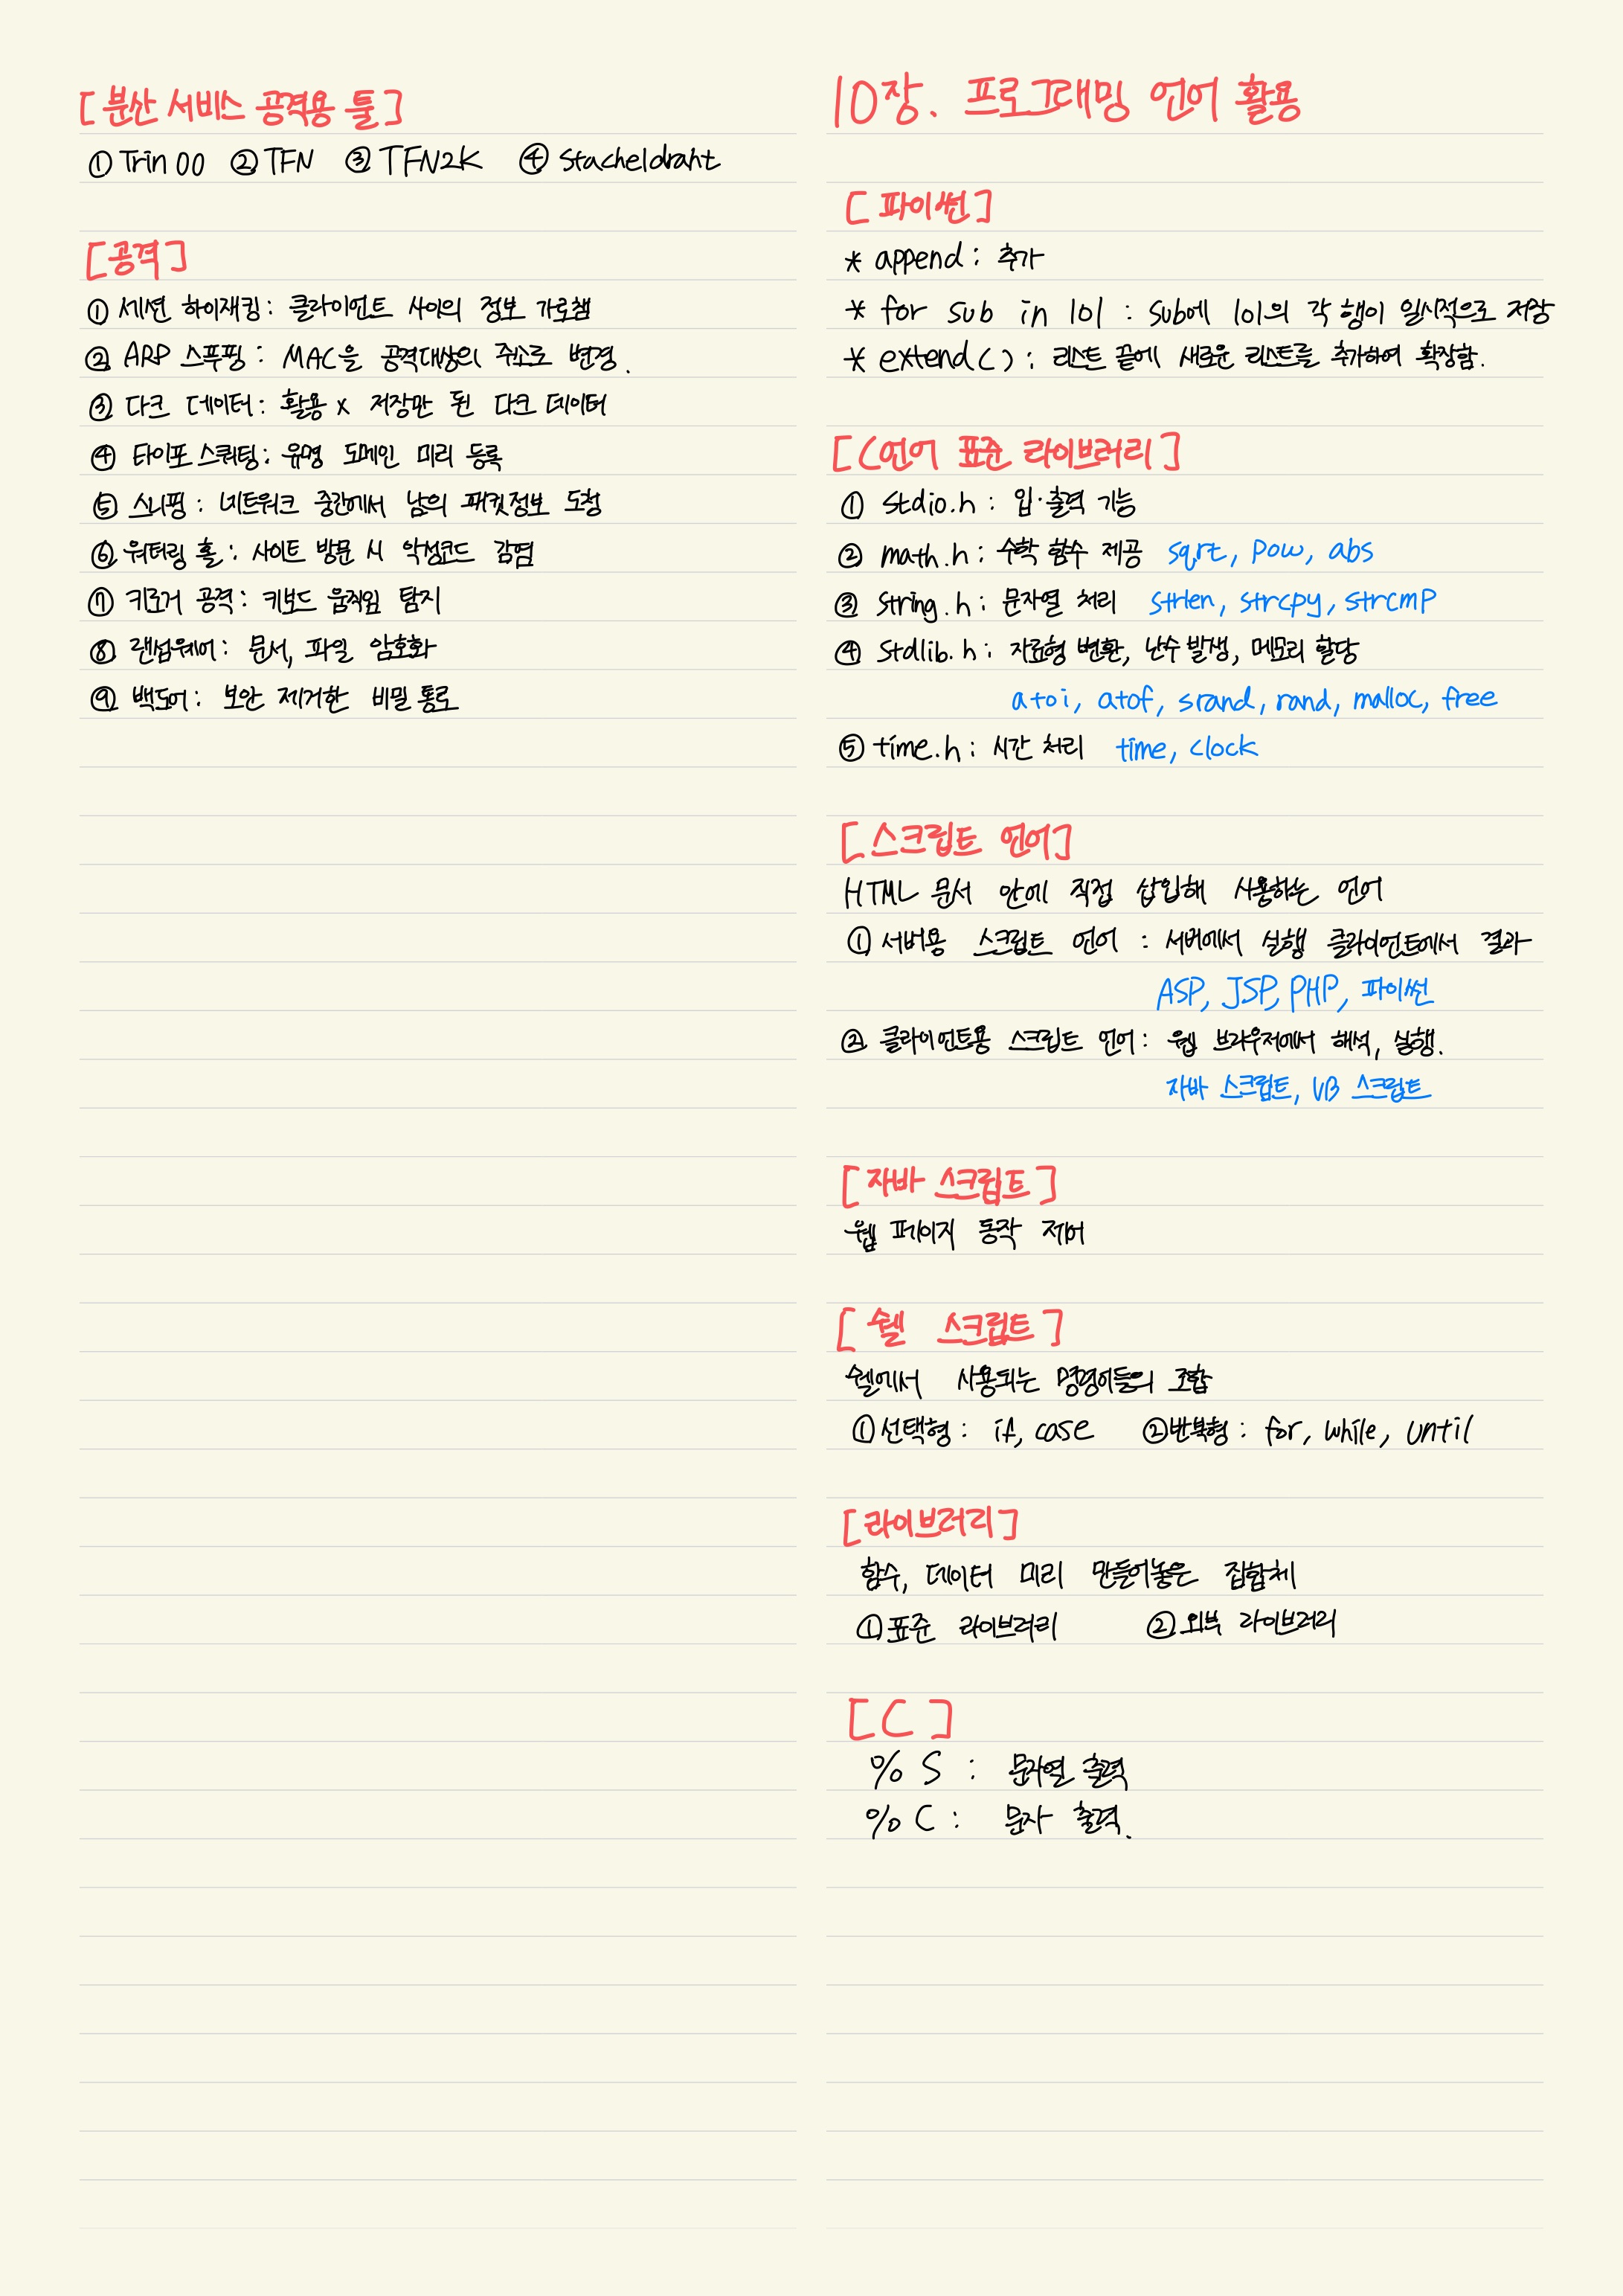 [분산 서비스 공격용 툴]
① Trin 00 ② TFN ③ TFN2K ④ Stacheldraht
[공격]
① 세션 하이재킹: 클라이언트 사이의 정보 가로챔
② ARP 스푸핑: MAC을 공격대상의 주소로 변경.
③ 다크 데이터: 활용 x 저장만 된 다크 데이터
④ 타이포스쿼팅: 유명 도메인 미리 등록
⑤ 스니핑: 네트워크 중간에서 남의 패킷정보 도청
⑥ 워터링 홀: 사이트 방문 시 악성코드 감염
⑦ 키로거 공격: 키보드 움직임 탐지
⑧ 랜섬웨어: 문서, 파일 암호화
⑨ 백도어: 보안 제거한 비밀 통로
10장. 프로그래밍 언어 활용
[파이썬]
* append: 추가
* for sub in lol : sub에 lol의 각 행이 일시적으로 저장
* extend(): 리스트 끝에 새로운 리스트를 추가하여 확장함.
[C언어 표준 라이브러리]
① Stdio.h: 입·출력 기능
② math.h: 수학 함수 제공 sqrt, pow, abs
③ String.h: 문자열 처리 strlen, strcpy, strcmp
④ Stdlib.h: 자료형 변환, 난수 발생, 메모리 할당
atoi, atof, srand, rand, malloc, free
⑤ time.h: 시간 처리 time, clock
[스크립트 언어]
HTML 문서 안에 직접 삽입해 사용하는 언어
① 서버용 스크립트 언어: 서버에서 실행 클라이언트에서 결과
ASP, JSP, PHP, 파이썬
② 클라이언트용 스크립트 언어: 웹 브라우저에서 해석, 실행.
자바 스크립트, VB 스크립트
[자바 스크립트]
웹 페이지 동작 제어
[쉘 스크립트]
쉘에서 사용되는 명령어들의 조합
① 선택형: if, case ② 반복형: for, while, until
[라이브러리]
함수, 데이터 미리 만들어놓은 집합체
① 표준 라이브러리 ② 외부 라이브러리
[C]
% S : 문자열 출력
% C : 문자 출력.